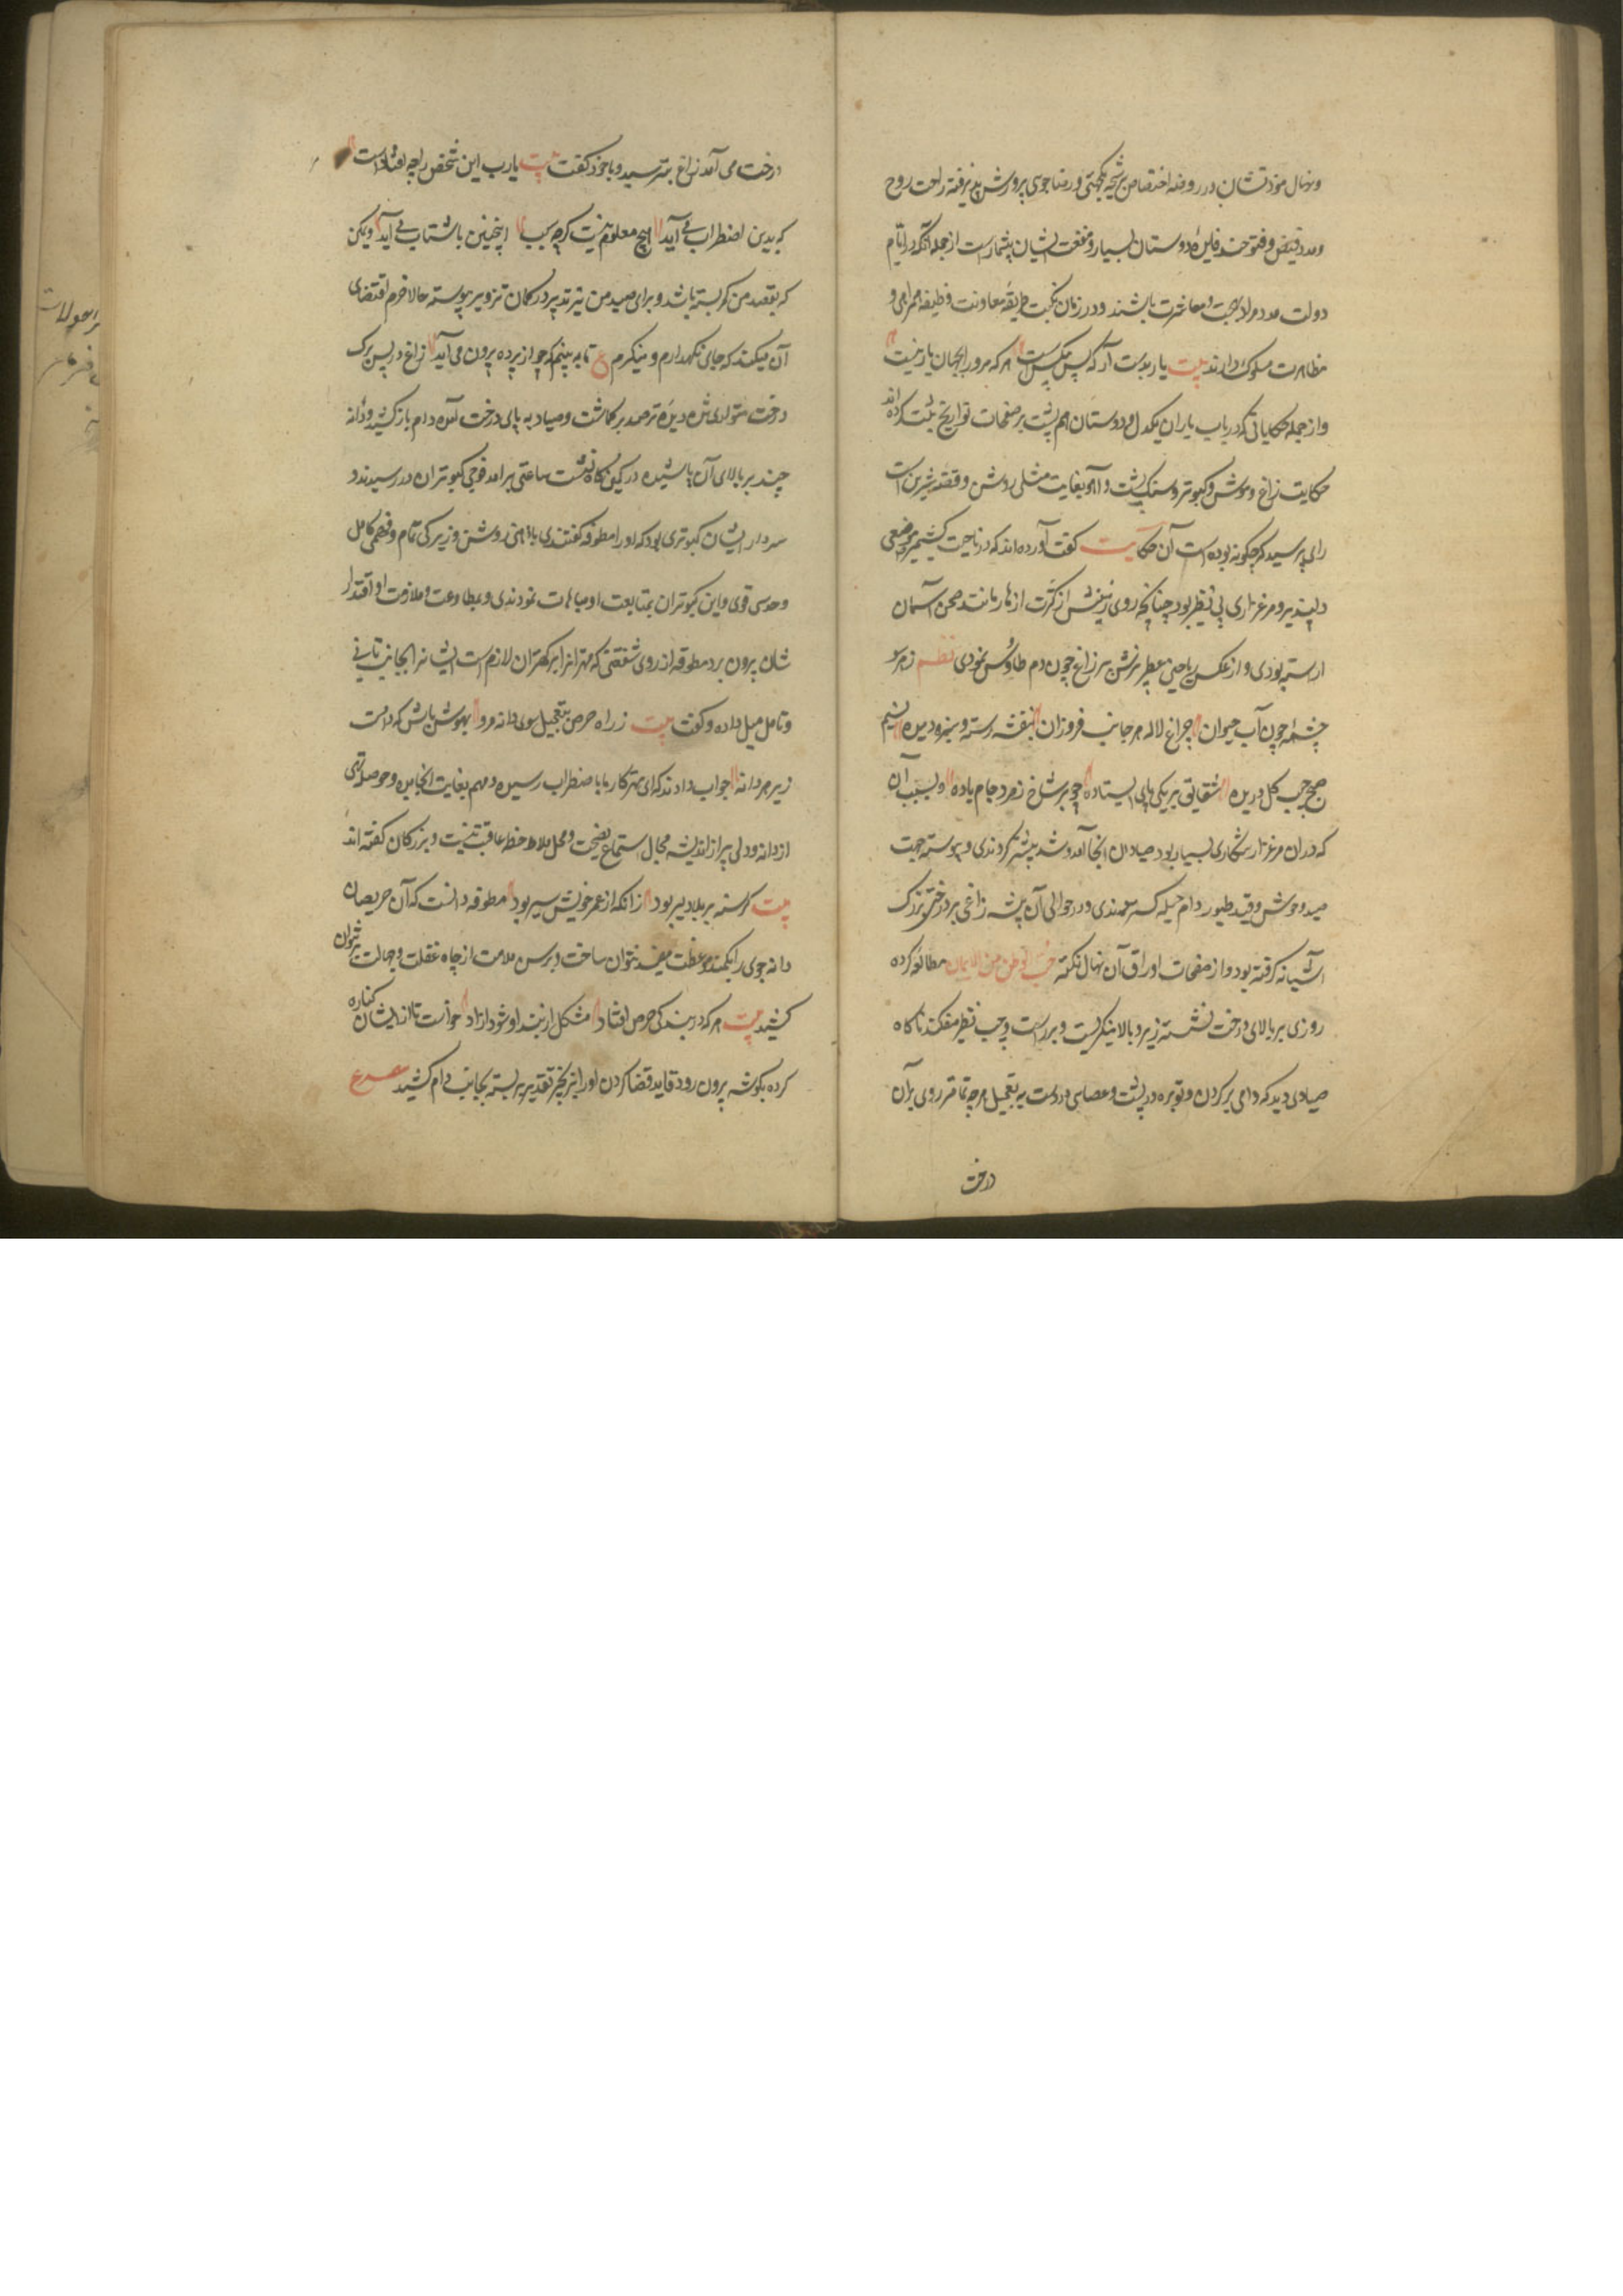 ونهال مودتشان در روضه اختصاص برشحه یکجهتی و رضاجوی پرورش پذیرفته راحت روح
ومدد فیض و فتوحند فایده دوستان بسیار و منفعت ایشان بیشمارست از جمله آنکه در ایام
دولت مدد مواد بهجت و معاشرت باشند و در زمان نکبت طریقه معاونت وظیفه همراهی و
مظاهرت مسلوک دارند بیت یار بدست آر که بس بیکس است هر که مرورا بجهان یار نیست
واز جمله حکایاتی که در باب یاران یکدل و دوستان هم پشت بر صفحات تواریخ ثبت کرده اند
حکایت زاغ و موش و کبوتر و سنگ پشت و آهو بغایت مثلی روشن و قصه شیرین است
رای پرسید که چگونه بوده است آن حکایت گفت آورده اند که در ناحیت کشمیر موضعی
دلپذیر و مرغزاری بی نظیر بود چنانچه روی زمینش از کثرت ازهار مانند صحن آسمان
اراسته بودی و از عکس ریاحین معطرش پر زاغ چون دم طاوس نمودی نظم ز هر سو
چشمه چون آب حیوان چراغ لاله هر جانب فروزان بنفشه رسته و سبزه دمیده نسیم
صبح جیب گل دریده شقایق بر یکی پای ایستاده چو بر شاخ زمرد جام باده و بسبب آن
که دران مرغزار شکاری بسیار بود صیادان آنجا آمد و شد بیشتر کردندی و پیوسته جهت
صید وحوش و قید طیور دام حیله گسترده‌اندی و در حوالی آن بیشه زاغی بر درختی بزرگ
آشیانه گرفته بود و از صفحات اوراق آن نهال نکته حب الوطن من الایمان مطالعه کرده
روزی بر بالای درخت نشسته زیر و بالا مینگریست و بر راست و چپ نظر میفکند ناگاه
صیادی دید که دامی بر گردن و توبره در پشت و عصایی در دست به تعجیل هر چه تمامتر روی بآن
درخت
درخت می آمد زاغ بترسید و با خود گفت بیت یارب این شخص را چه افتادست
که بدین اضطراب می آید هیچ معلوم نیست کز چه سبب اینچنین با شتاب می آید و یمکن
که بقصد من کمر بسته باشد و برای صید من تیر تدبیر در کمان تزویر پیوسته حالا حزم اقتضای
آن میکند که جای نگهدارم و مینگرم ع تا به بینم که چو از پرده برون می آید زاغ در پس برگ
درخت متواری شد و دیده ترصد بر گماشت و صیاد به پای درخت آمده دام باز کشید و دانه
چند بر بالای آن پاشیده در کمین گاه نشست ساعتی برآمد فوجی کبوتران در رسیدند و
سردار ایشان کبوتری بود که او را مطوقه گفتندی با ذهنی روشن و زیرکی تمام و فهمی کامل
و حدسی قوی و این کبوتران بمتابعت او مباهات نمودندی و بمطاوعت و ملازمت او اقتدار
شان بیرون برد مطوقه از روی شفقتی که مهتران را بر کهتران لازم است ایشانرا بجانب تانی
و تامل میل داده و گفت بیت ز راه حرص بتعجیل سوی دانه مرو بهوش باش که دامست
زیر هر دانه جواب دادند که ای مهتر کار ما باضطراب رسیده و مهم بغایت انجامیده و حوصله تهی
از دانه و دلی پر از اندیشه مجال استماع نصیحت و محل ملاحظه عاقبت نیست و بزرگان گفته اند
بیت گرسنه بر بلا دلیر بود زانکه از عمر خویش سیر بود مطوقه دانست که آن حریصان
دانه جوی را بکمند موعظت مقید نتوان ساخت و برسن ملامت از چاه غفلت و جهالت بر نتوان
کشید بیت هر که در بندگی حرص افتاد مشکل از بند او شود آزاد خواست تا از ایشان کناره
کرده بگوشه بیرون رود قاید قضا گردن او را بزنجیر تقدیر بربسته بجانب دام کشید مصرع